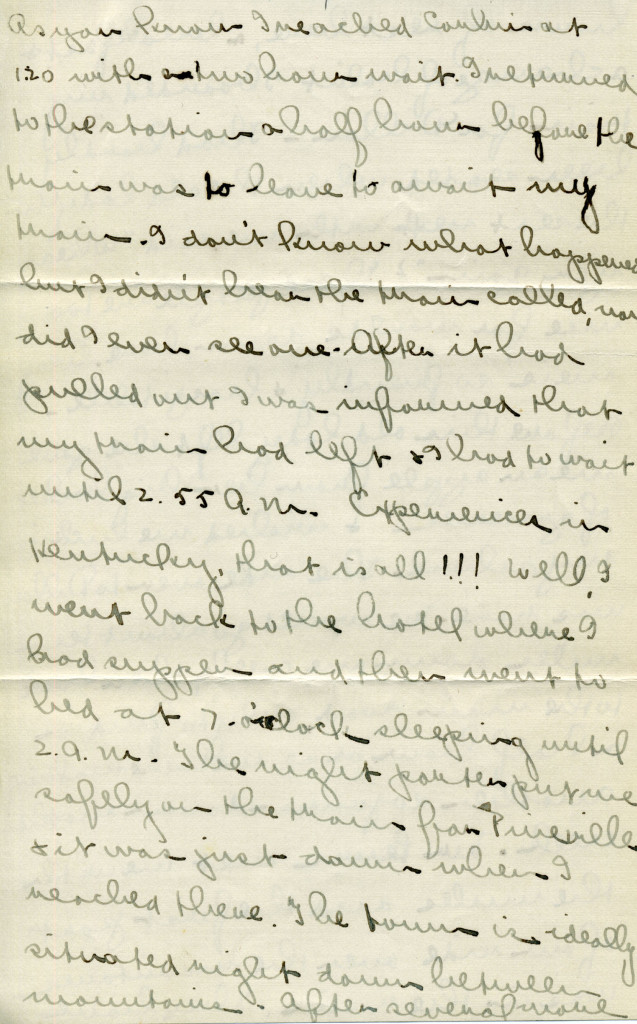 As you know I reached Corbin at
1:20 with a two hour wait. I returned
to the station a half hour before the
train was to leave to await my
train. I don't know what happened
but I didn't hear the train called, nor
did I even see one. After it had
pulled out I was informed that
my train had left & I had to wait
until 2.55 A.M. Experiences in
Kentucky, that is all!!! Well, I
went back to the hotel where I
had supper and then went to
bed at 7. o'clock sleeping until
2. A.M. The night porter put me
safely on the train for Pineville
& it was just dawn when I
reached there. The town is ideally
situated right down between
mountains. After several more